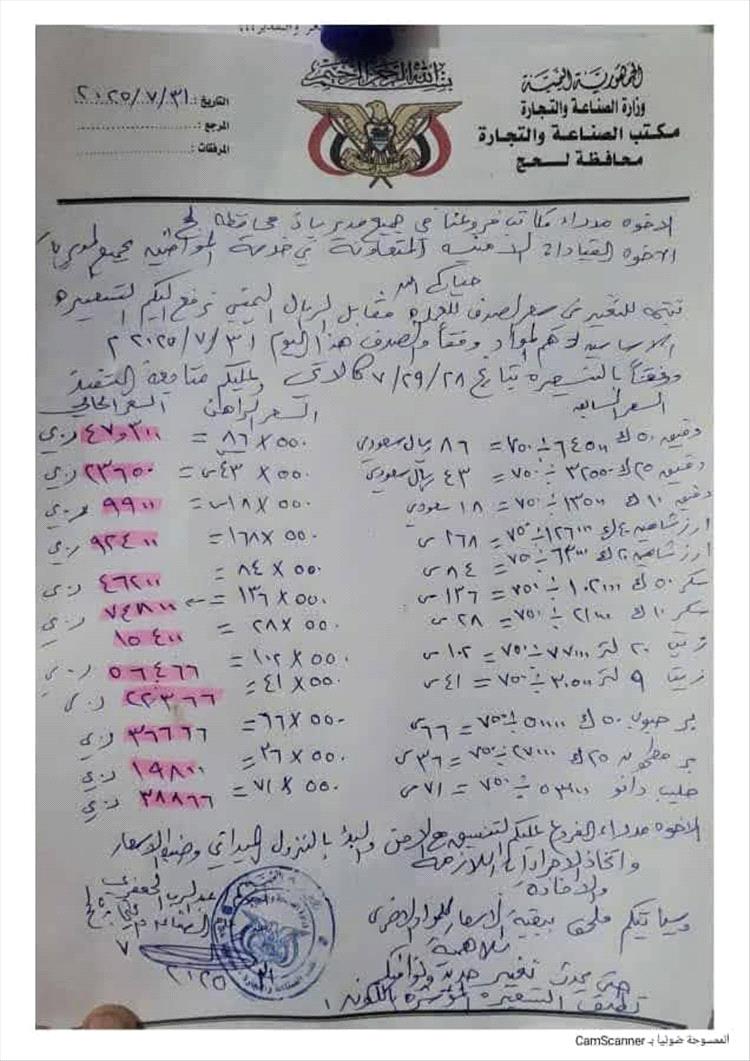 بسم الله الرحمن الرحيم
الجمهورية اليمنية
وزارة الصناعة والتجارة
مكتب الصناعة والتجارة
محافظة لحج
التاريخ: ٢٠٢٥/٧/٣١
المرجع:
المرفقات:
الاخوه مدراء مكاتب فروعنا في جميع مديريات محافظة لحج
الاخوه القيادات الامنيه المتعاونة في خدمة المواطنين بجميع المديريات
حياكم الله
نتيجه للتغير في سعر الصرف للعمله مقابل الريال اليمني نرفع اليكم التسعيره
الاساسيه لاهم المواد وفقاً والصرف هذا اليوم ٢٠٢٥/٧/٣١ م
وفقاً بالتسعيره بتاريخ ٧/٢٩/٢٨ كالاتي وعليكم متابعة التنفيذ
السعر السابقه السعر الراهن السعر الحالي
دقيق ٥٠ ك ٦٤٥٠٠ ÷ ٧٥٠ = ٨٦ ريال سعودي ٥٥٠ × ٨٦ = ٤٧٣٠٠ ر.ي
دقيق ٢٥ ك ٣٢٥٠٠ ÷ ٧٥٠ = ٤٣ ريال سعودي ٥٥٠ × ٤٣ = ٢٣٦٥٠ ر.ي
دقيق ١٠ ك ١٣٥٠٠ ÷ ٧٥٠ = ١٨ سعودي ٥٥٠ × ١٨ = ٩٩٠٠ ر.ي
ارز شاهين ٤٠ ك ١٢٦٠٠٠ ÷ ٧٥٠ = ١٦٨ س ٥٥٠ × ١٦٨ = ٩٢٤٠٠ ر.ي
ارز شاهين ٢٠ ك ٦٣٠٠٠ ÷ ٧٥٠ = ٨٤ س ٥٥٠ × ٨٤ = ٤٦٢٠٠ ر.ي
سكر ٥٠ ك ١٠٢٠٠٠ ÷ ٧٥٠ = ١٣٦ س ٥٥٠ × ١٣٦ = ٧٤٨٠٠ ر.ي
سكر ١٠ ك ٢١٠٠٠ ÷ ٧٥٠ = ٢٨ س ٥٥٠ × ٢٨ = ١٥٤٠٠
زيت ٢٠ لتر ٧٧٠٠٠ ÷ ٧٥٠ = ١٠٢ س ٥٥٠ × ١٠٢ = ٥٦٤٦٦ ر.ي
زيت ٩ لتر ٣٠٥٠٠ ÷ ٧٥٠ = ٤١ س ٥٥٠ × ٤١ = ٢٢٣٦٦ ر.ي
بر حبوب ٥٠ ك ٥٠٠٠٠ ÷ ٧٥٠ = ٦٦ س ٥٥٠ × ٦٦ = ٣٦٦٦٦ ر.ي
بر مطحون ٢٥ ك ٢٧٠٠٠ ÷ ٧٥٠ = ٣٦ س ٥٥٠ × ٣٦ = ١٩٨٠٠ ر.ي
حليب دانو ٥٣٠٠٠ ÷ ٧٥٠ = ٧١ س ٥٥٠ × ٧١ = ٣٨٨٦٦ ر.ي
الاخوه مدراء الفروع عليكم التنسيق مع الامن والبدء بالنزول الميداني وضبط الاسعار
واتخاذ الاجراءات اللازمة
والافادة
وسياتيكم ملحق ببقية الاسعار للمواد الاخرى
الهامة
حتى يحدث تغيير جديد ونوافيكم
عبدالرب الجعفري
٧
٢٠٢٥ ٣١
الممسوحة ضوئيا بـ CamScanner